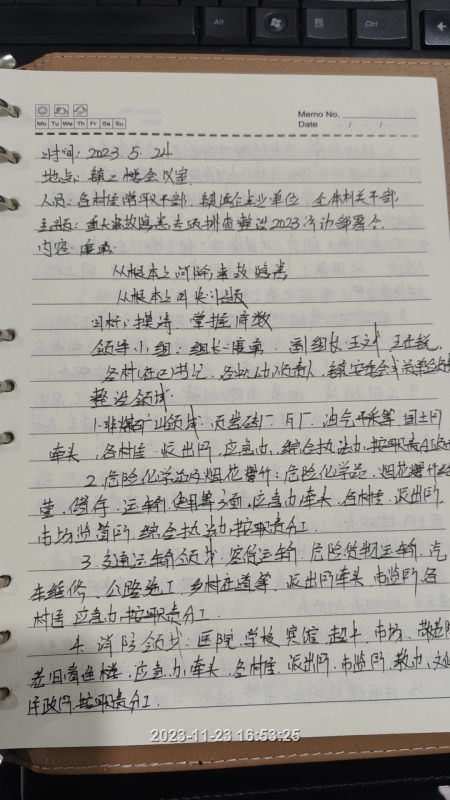 Alt
Ctrl
Memo No.
Mo Tu We Th Fr Sa Su
Date / /
时间: 2023.5.24
地点: 镇三楼会议室
人员: 各村居常职干部、镇属企事业单位、全体机关干部
主题: 重大事故隐患专项排查整治2023行动部署会
内容:
从根本上消除事故隐患
从根本上解决问题
目标: 摸清、掌握底数
领导小组: 组长: 副组长: 王
各村(社区)书记、各负责人、镇安委会成员单位
整治领域:
1.非煤矿业领域: 页岩砖厂、油气开采等, 国土所
牵头, 各村居、派出所、应急办、综合执法办按职责分工
2.危险化学品和烟花爆竹: 危险化学品、烟花爆竹经
营、储存、运输、使用等方面, 应急办牵头、各村居、派出所
市场监管所、综合执法办按职责分工.
3.交通运输领域: 客货运输、危险货物运输、汽
车维修、公路施工、乡村道等, 派出所牵头, 市监所、各
村居、应急办按职责分工.
4.消防领域: 医院、学校、宾馆、超市、市场、敬老院
老旧高层楼, 应急办牵头, 各村居、派出所、市监所、教办、文化
民政所按职责分工.
2023-11-23 16:53:25